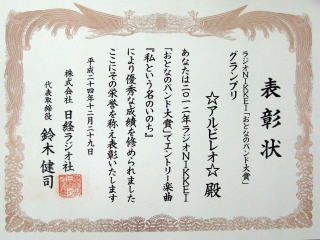 表彰状
ラジオNIKKEI「おとなのバンド大賞」
グランプリ
☆アルビレオ☆ 殿
あなたは二〇一二年ラジオNIKKEI
「おとなのバンド大賞」でエントリー楽曲
『私という名のいのち』
により優秀な成績を修められました
ここにその栄誉を称え表彰いたします
平成二十四年十二月二十九日
株式会社 日経ラジオ社
代表取締役 鈴木健司